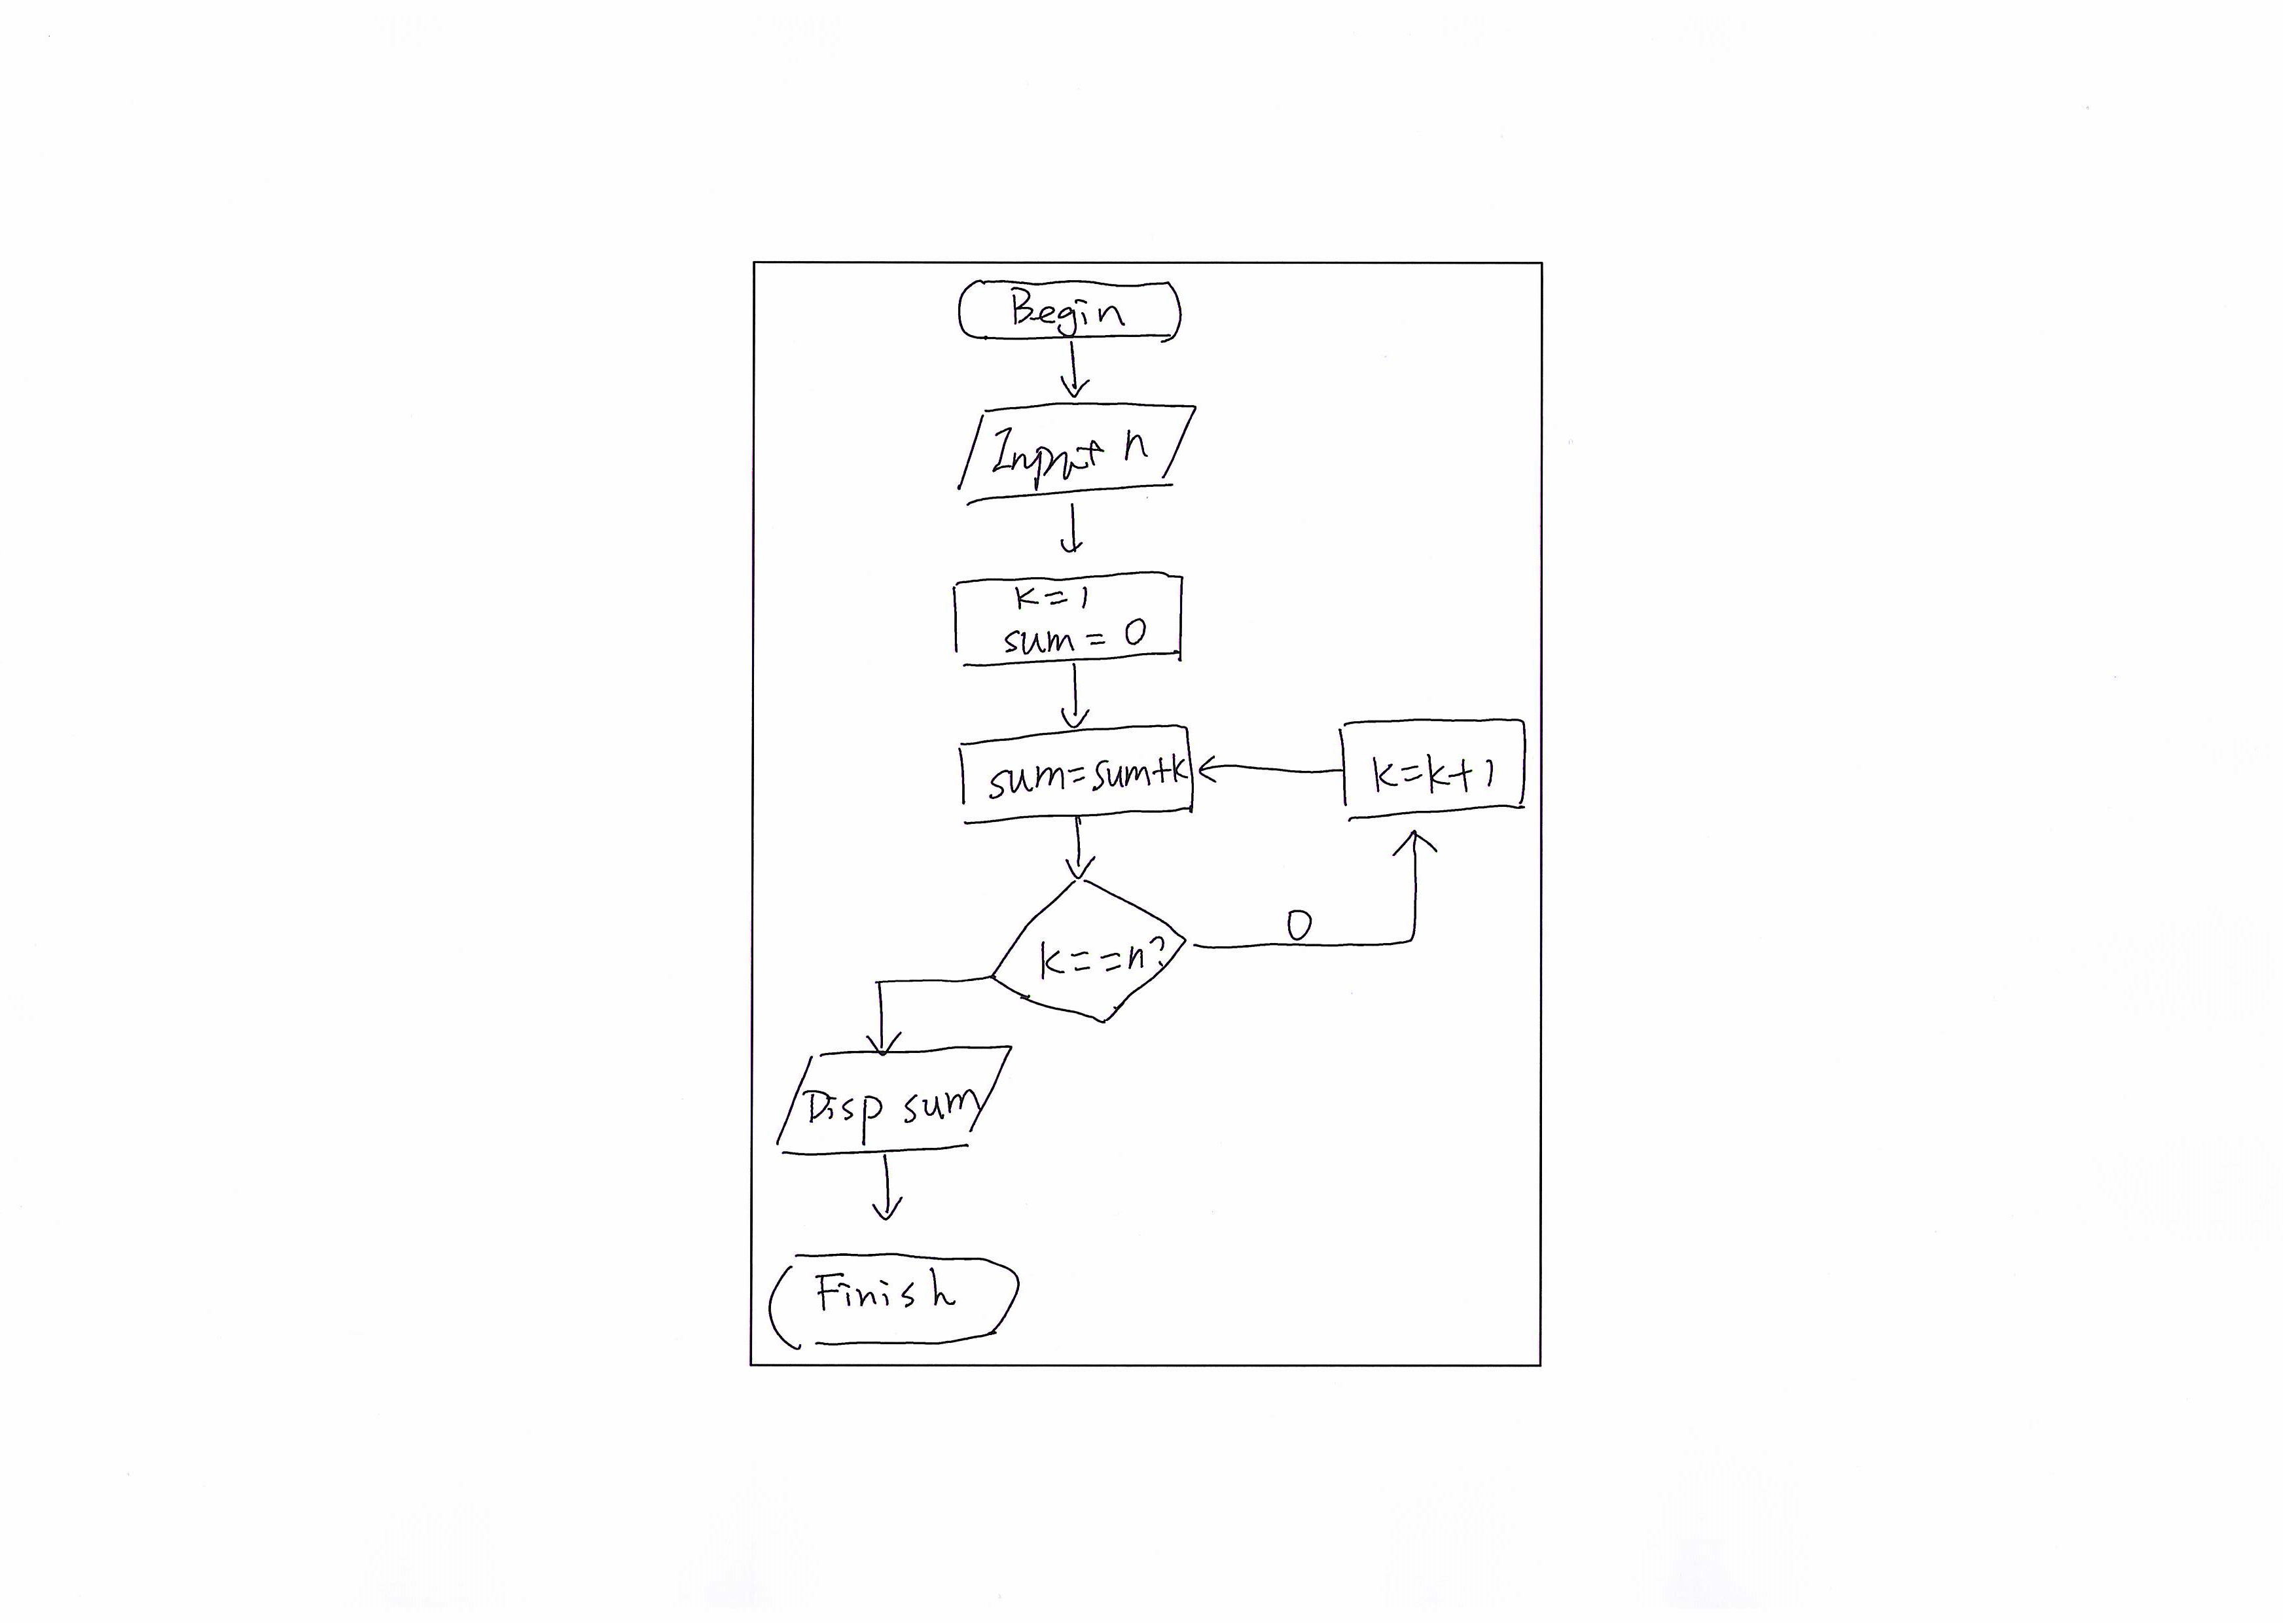 Begin
Input n
k=1
sum=0
sum=sum+k
k=k+1
k==n?
0
Disp sum
Finish